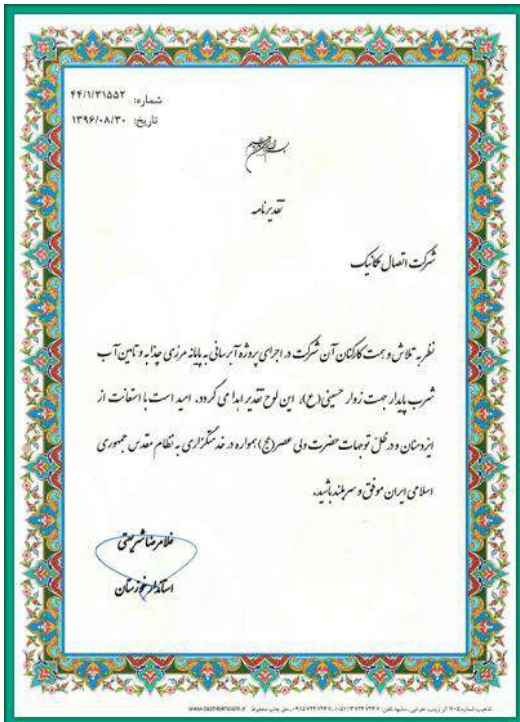 شماره: ۴۴/۱/۳۱۵۵۲
تاریخ: ۱۳۹۶/۰۸/۳۰
بسم الله الرحمن الرحیم
تقدیرنامه
شرکت اتصال مکانیک
نظر به تلاش و همت کارکنان آن شرکت در اجرای پروژه آبرسانی به پایانه مرزی چذابه و تامین آب
شرب پایدار جهت زوار حسینی (ع)، این لوح تقدیر اهدا می گردد. امید است با استعانت از
ایزدمنان و در ظلّ توجهات حضرت ولی عصر (عج) همواره در خدمتگزاری به نظام مقدس جمهوری
اسلامی ایران موفق و سربلند باشید.
غلامرضا شریعتی
استاندار خوزستان